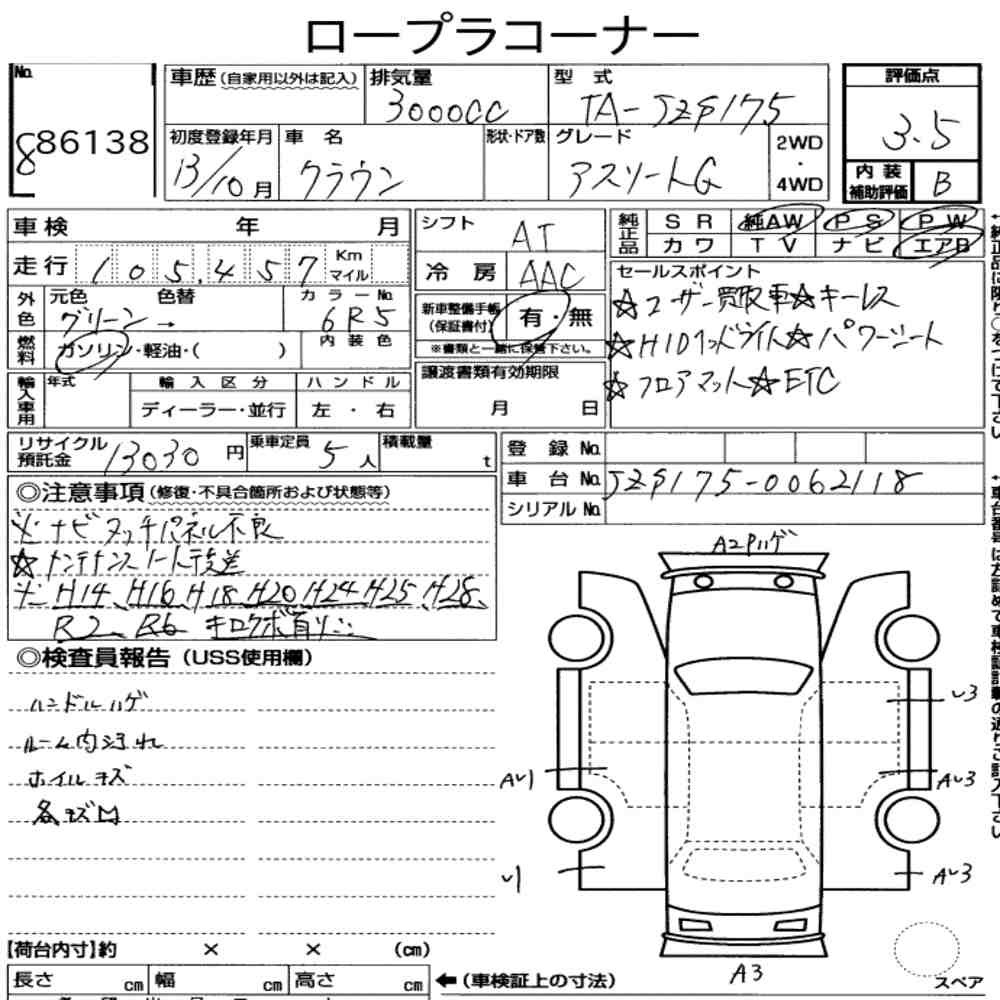 ロープラコーナー
No. 86138
車歴(自家用以外は記入) 排気量 3000cc 型式 TA-JZS175 評価点 3.5
初度登録年月 13/10月 車名 クラウン 形状・ドア数 グレード アスリートG 2WD・4WD 内装補助評価 B
車検 年 月 シフト AT 純正品 SR 純AW PS PW
走行 105,457 Km マイル 冷房 AAC カワ TV ナビ エアB
外色 元色 グリーン→ 色替 カラーNo. 6R5 新車整備手帳(保証書付) 有・無
※書類と一緒に保管下さい。
燃料 ガソリン・軽油・( ) 内装色
セールスポイント
☆ユーザー買取車☆キーレス
☆HIDヘッドライト☆パワーシート
☆フロアマット☆ETC
輸入車用 年式 輸入区分 ハンドル 譲渡書類有効期限
ディーラー・並行 左・右 月 日
リサイクル預託金 13030円 乗車定員 5人 積載量 t 登録No.
車台No. JZS175-0062118
シリアルNo.
◎注意事項(修復・不具合箇所および状態等)
※ナビタッチパネル不良
☆メンテナンスノート後送
※H14、H16、H18、H20、H24、H25、H28、
R2、R6 キロクボ有り
◎検査員報告(USS使用欄)
ハンドルハゲ
ルーム内汚れ
ホイルキズ
各キズ凹
A2Pハゲ
U3
AU1
AU3
U1
AU3
A3
スペア
【荷台内寸】約 × × (cm)
長さ cm 幅 cm 高さ cm ←(車検証上の寸法)